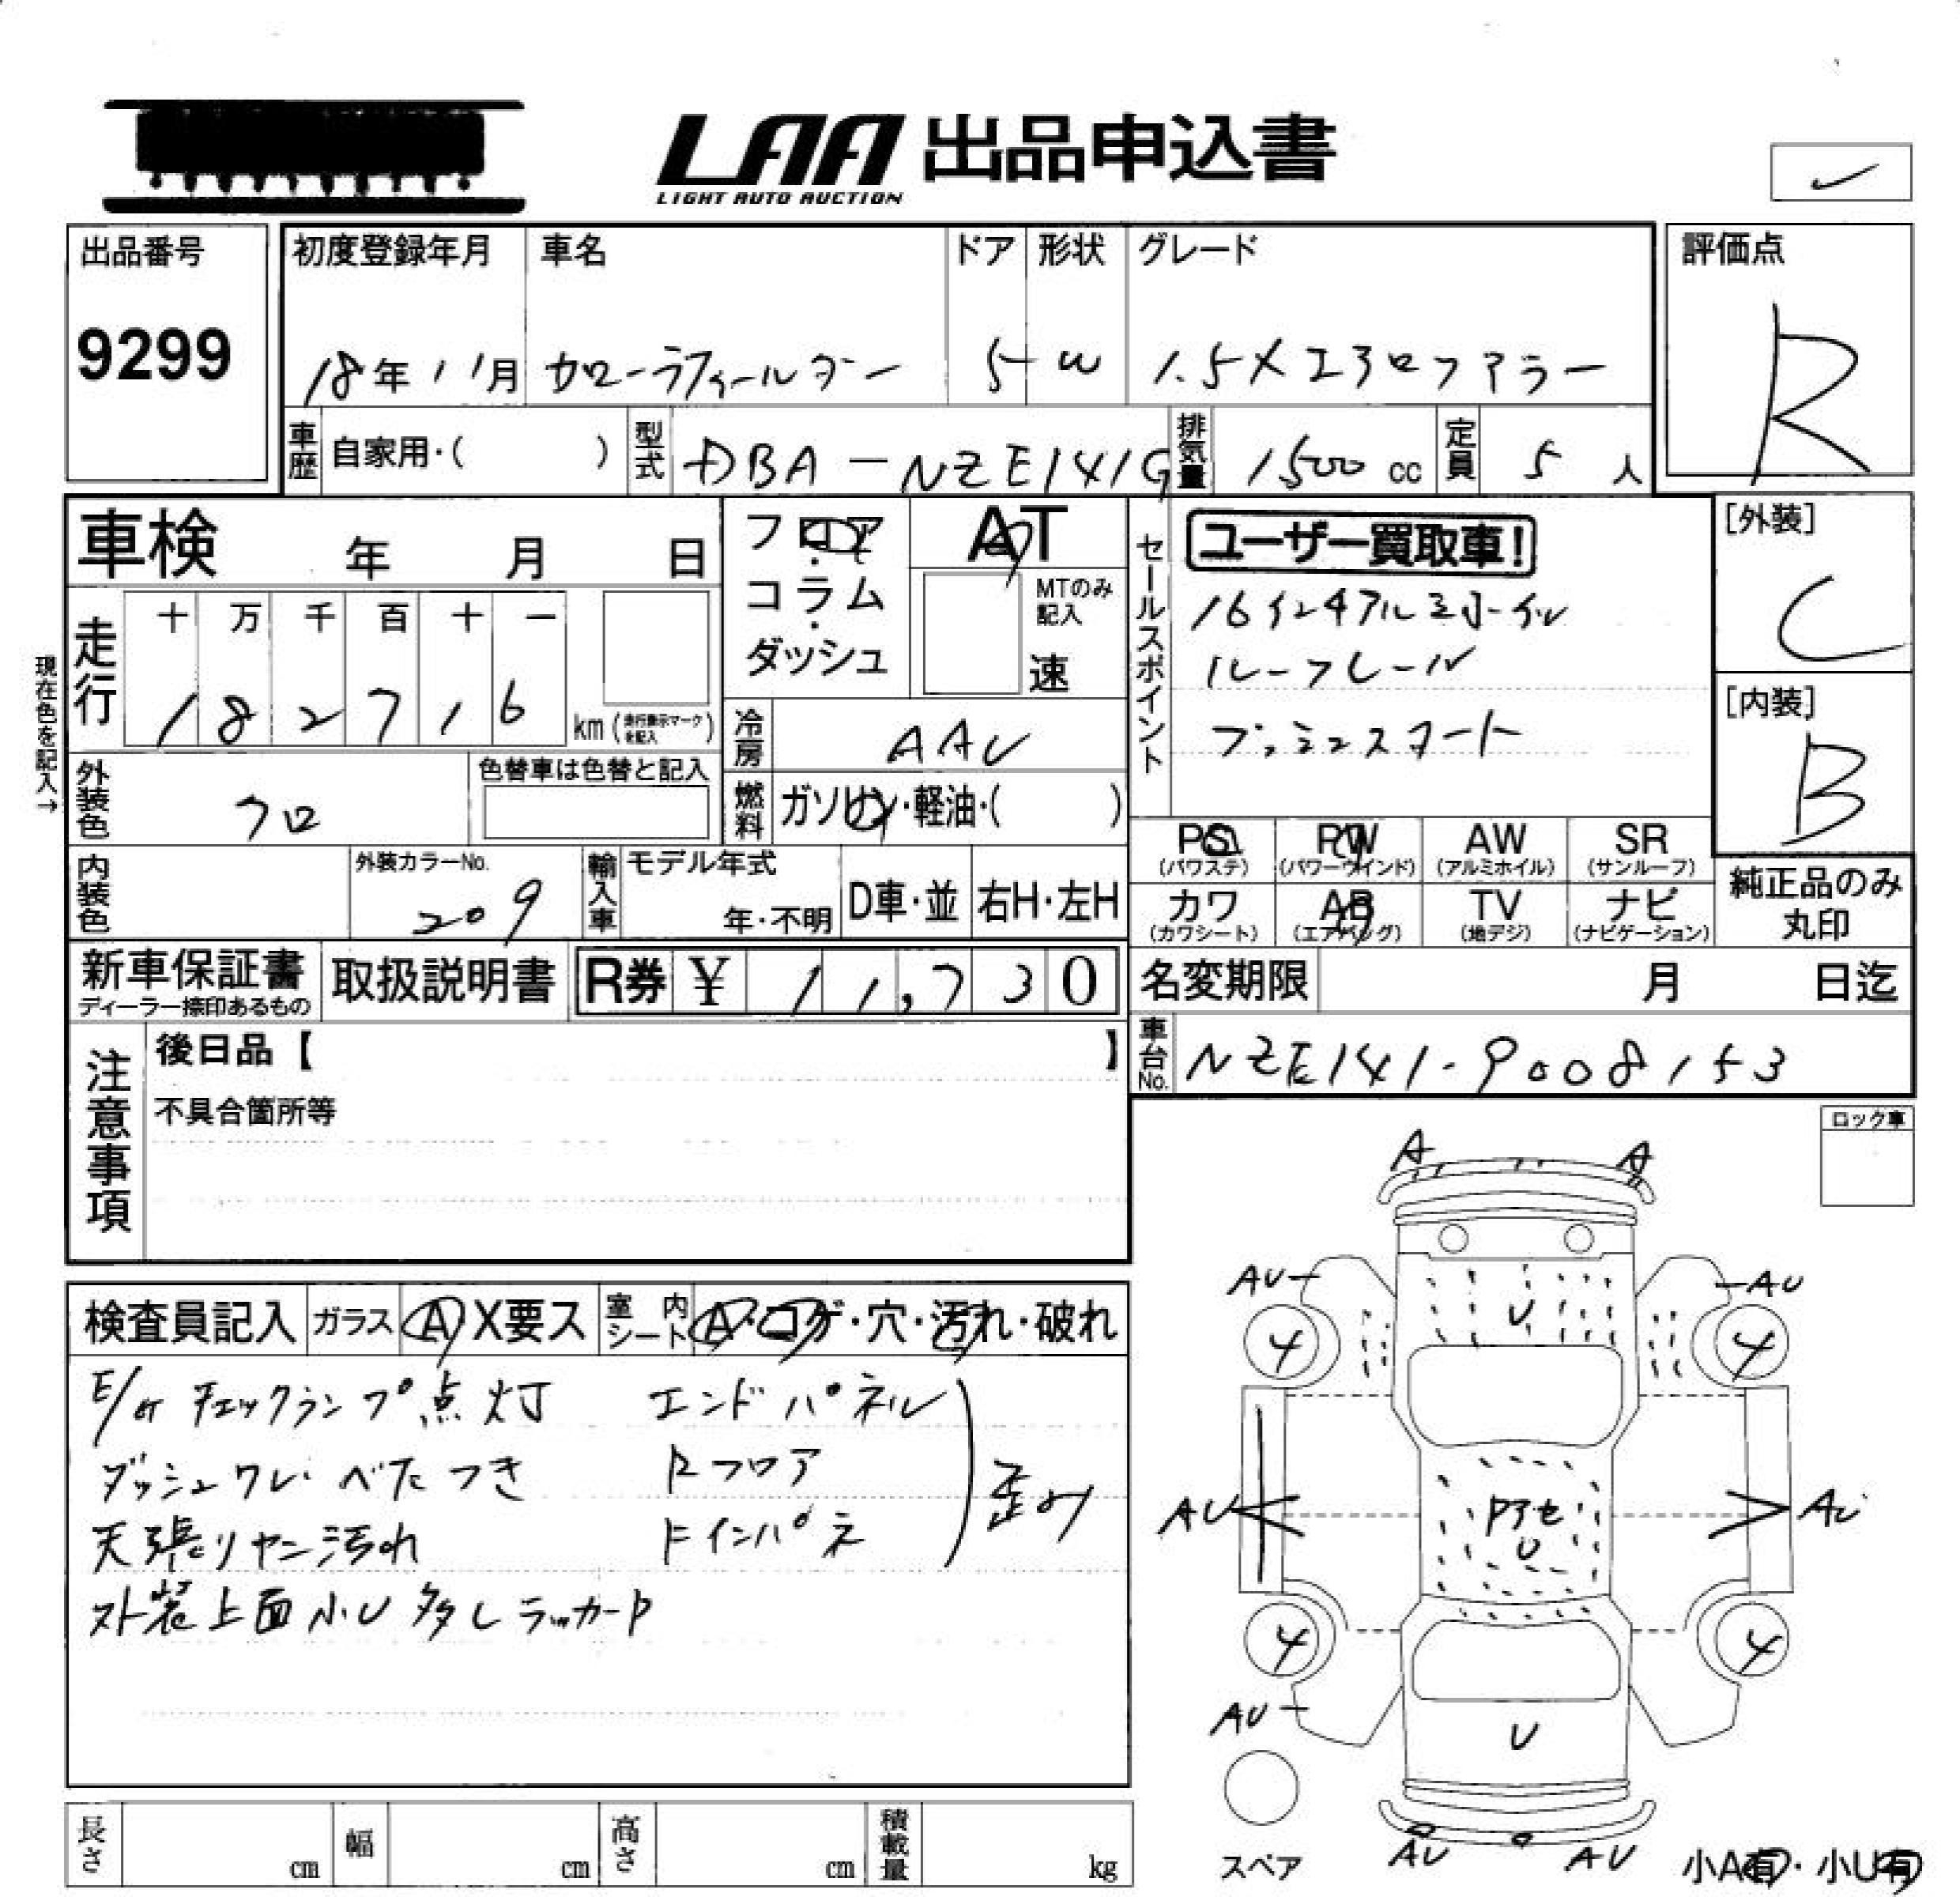 LAA 出品申込書
LIGHT AUTO AUCTION
出品番号
9299
初度登録年月
18年11月
車名
カローラフィールダー
ドア
5
形状
W
グレード
1.5X エアロツアラー
評価点
R
車歴 自家用・( )
型式 DBA-NZE141G
排気量 1500 cc
定員 5 人
車検 年 月 日
フロア・コラム・ダッシュ
AT
MTのみ記入
速
セールスポイント
ユーザー買取車!
16インチアルミホイル
ルーフレール
プッシュスタート
[外装]
C
[内装]
B
現在色を記入→
走行
十 万 千 百 十 一
1 8 2 7 1 6
km (走行表示マークを記入)
冷房 AAC
外装色 クロ
色替車は色替と記入
燃料 ガソリン・軽油・( )
内装色
外装カラーNo.
209
輸入車
モデル年式
年・不明
D車・並
右H・左H
PS (パワステ)
PW (パワーウインド)
AW (アルミホイル)
SR (サンルーフ)
カワ (カワシート)
AB (エアバッグ)
TV (地デジ)
ナビ (ナビゲーション)
純正品のみ丸印
新車保証書
ディーラー捺印あるもの
取扱説明書
R券 ¥ 11,730
名変期限 月 日迄
車台No. NZE141-9008153
注意事項
後日品【 】
不具合箇所等
ロック車
検査員記入
ガラス A X要ス
室内シート A・コゲ・穴・汚れ・破れ
E/gチェックランプ点灯
ダッシュワレ・べたつき
天張りヤニ汚れ
外装上面小U多しラッカーP
エンドパネル
Rフロア
Rインパネ
歪み
A A
AU AU
U
4 4
AU AU
Pアセ
U
4 4
AU
U
AU AU
スペア
小A有・小U有
長さ cm
幅 cm
高さ cm
積載量 kg